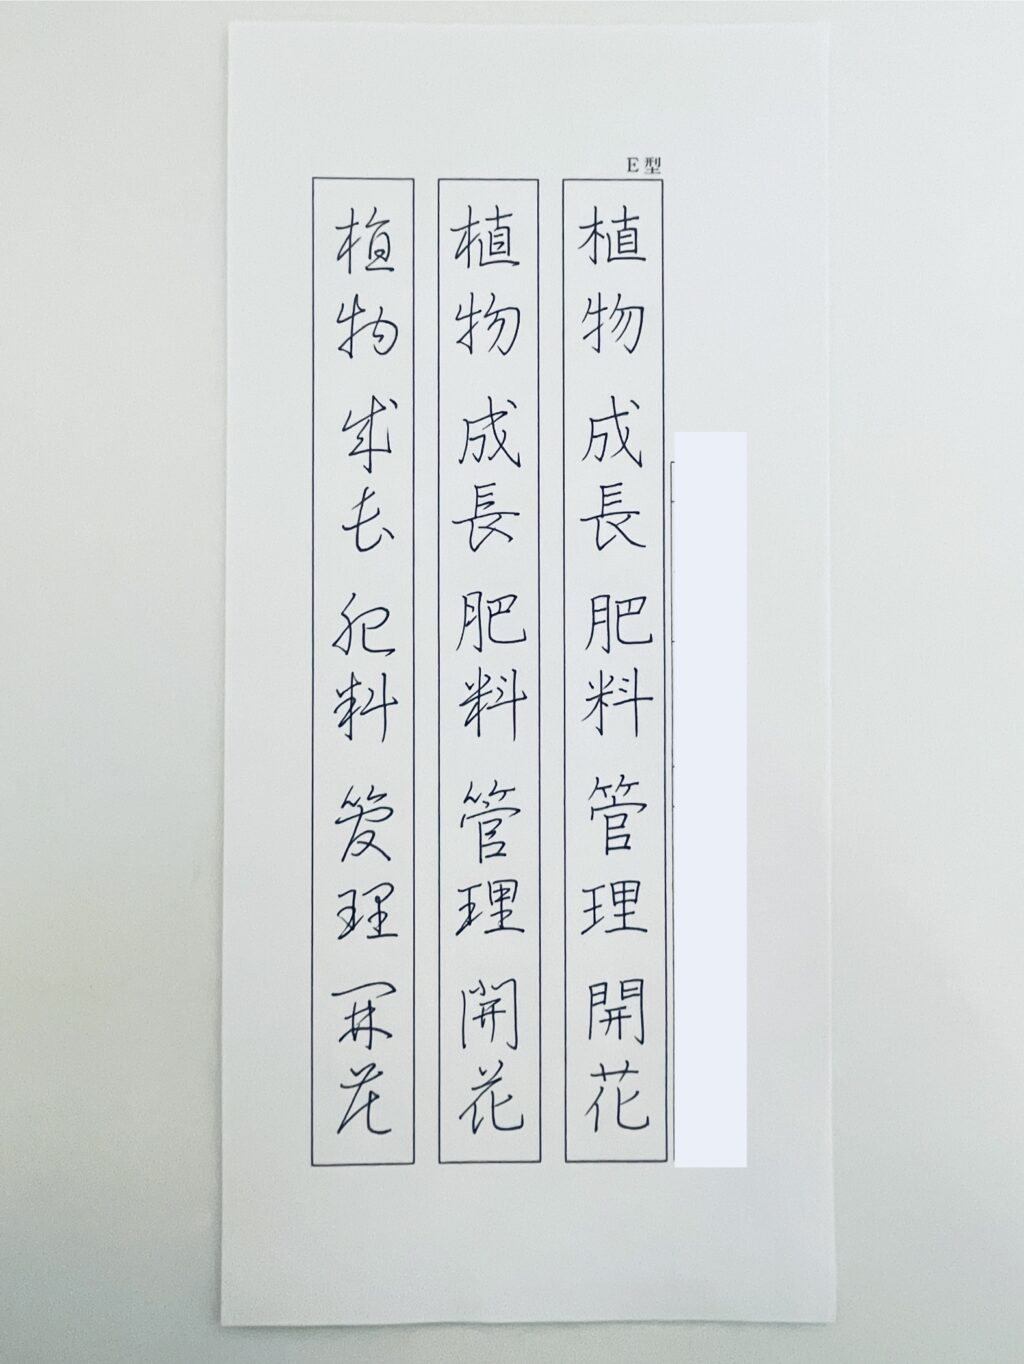 E型
植物成長肥料管理開花
植物成長肥料管理開花
植物成長肥料管理開花